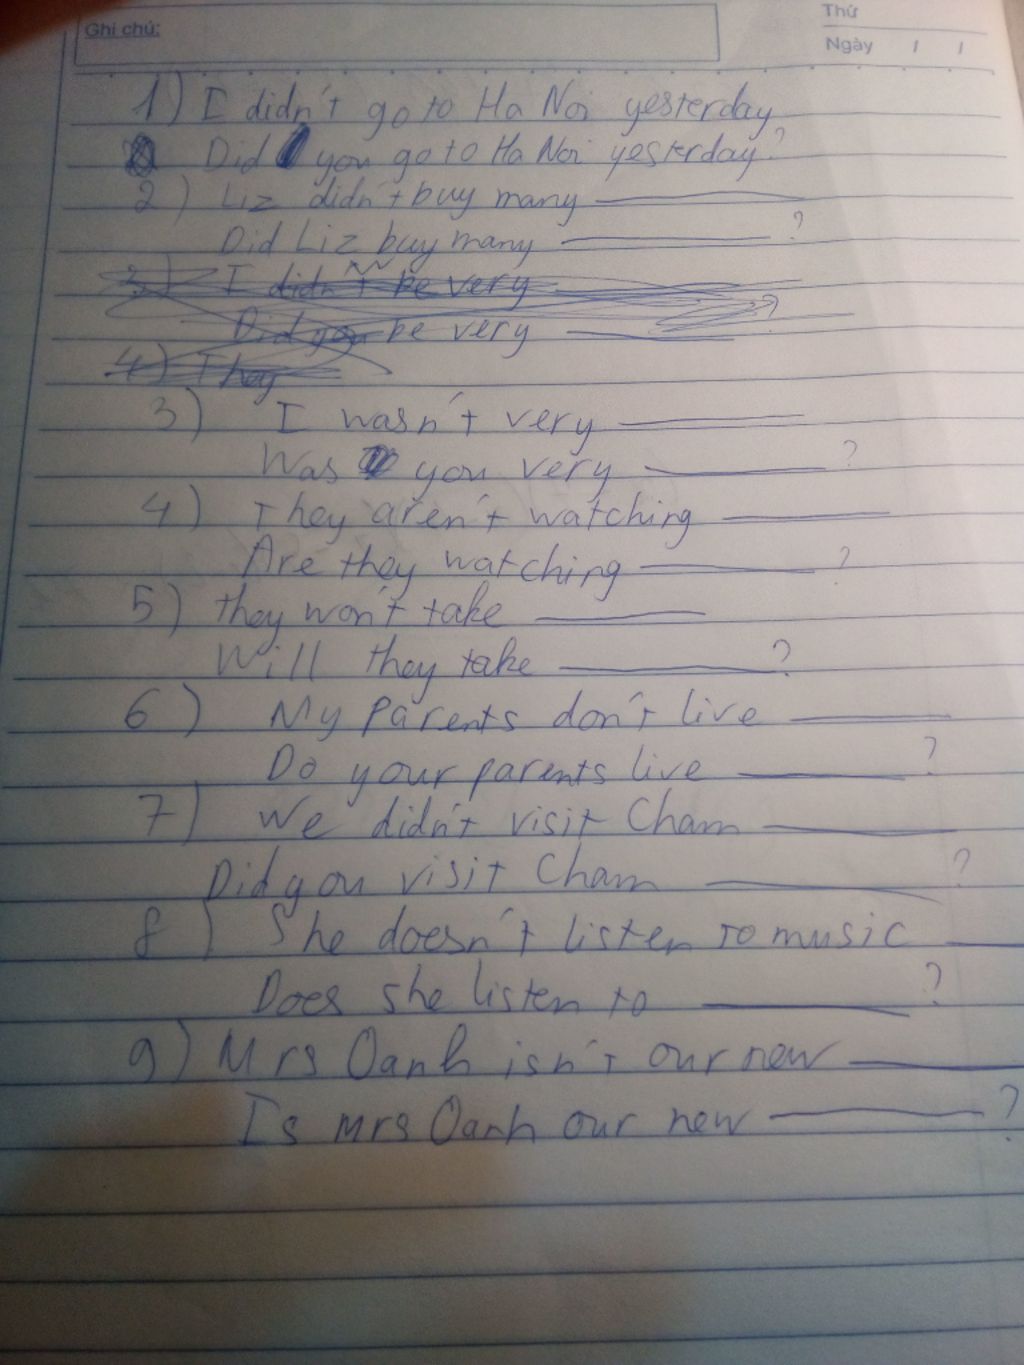 Ghi chú:
Thứ
Ngày / /
1) I didn't go to Ha Noi yesterday
Did you go to Ha Noi yesterday?
2) Liz didn't buy many
Did Liz buy many ?
3) I didn't be very
Did you be very ?
4) They
3) I wasn't very
Was you very ?
4) They aren't watching
Are they watching ?
5) they won't take
Will they take ?
6) My parents don't live
Do your parents live ?
7) We didn't visit Cham
Did you visit Cham ?
8) She doesn't listen to music
Does she listen to ?
9) Mrs Oanh isn't our new
Is mrs Oanh our new ?